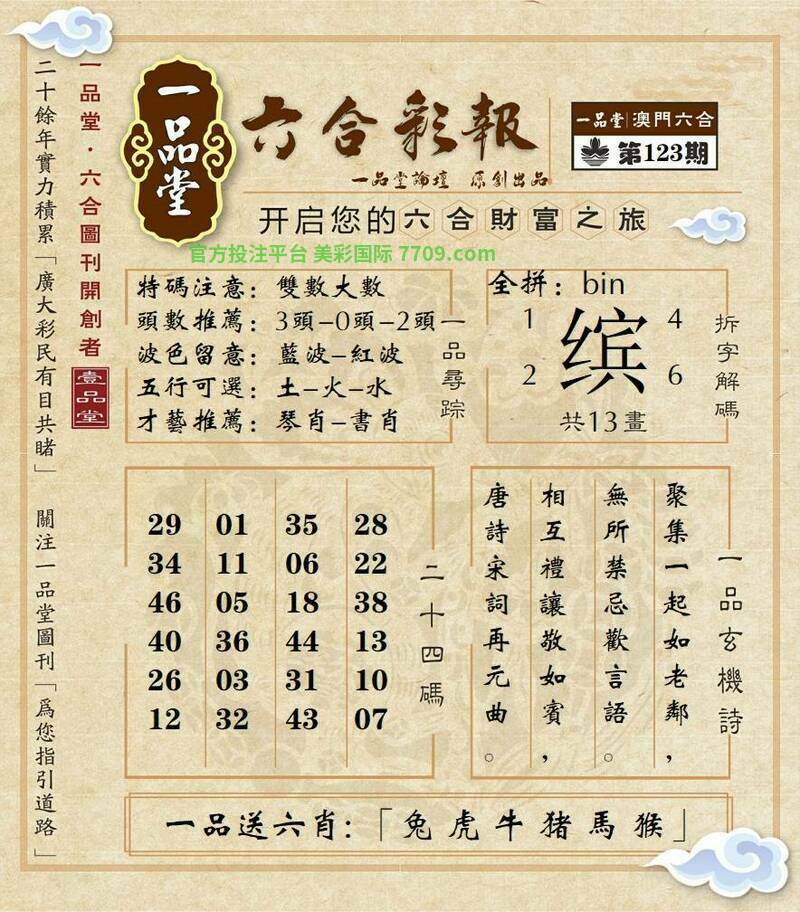 二十餘年實力積累「廣大彩民有目共睹」
關注一品堂圖刊「爲您指引道路」
一品堂·六合圖刊開創者
壹品堂
一品堂
六合彩報
一品堂論壇 原創出品
一品堂|澳門六合
第123期
开启您的六合財富之旅
官方投注平台 美彩国际 7709.com
特碼注意：雙數大數
頭數推薦：3頭-0頭-2頭
波色留意：藍波-紅波
五行可選：土-火-水
才藝推薦：琴肖-書肖
一品尋踪
全拼：bin
1 4
缤
2 6
共13畫
拆字解碼
29 01 35 28
34 11 06 22
46 05 18 38
40 36 44 13
26 03 31 10
12 32 43 07
二十四碼
一品玄機詩
聚集一起如老鄰，
無所禁忌歡言語。
相互禮讓敬如賓，
唐詩宋詞再元曲。
一品送六肖：「兔虎牛猪馬猴」